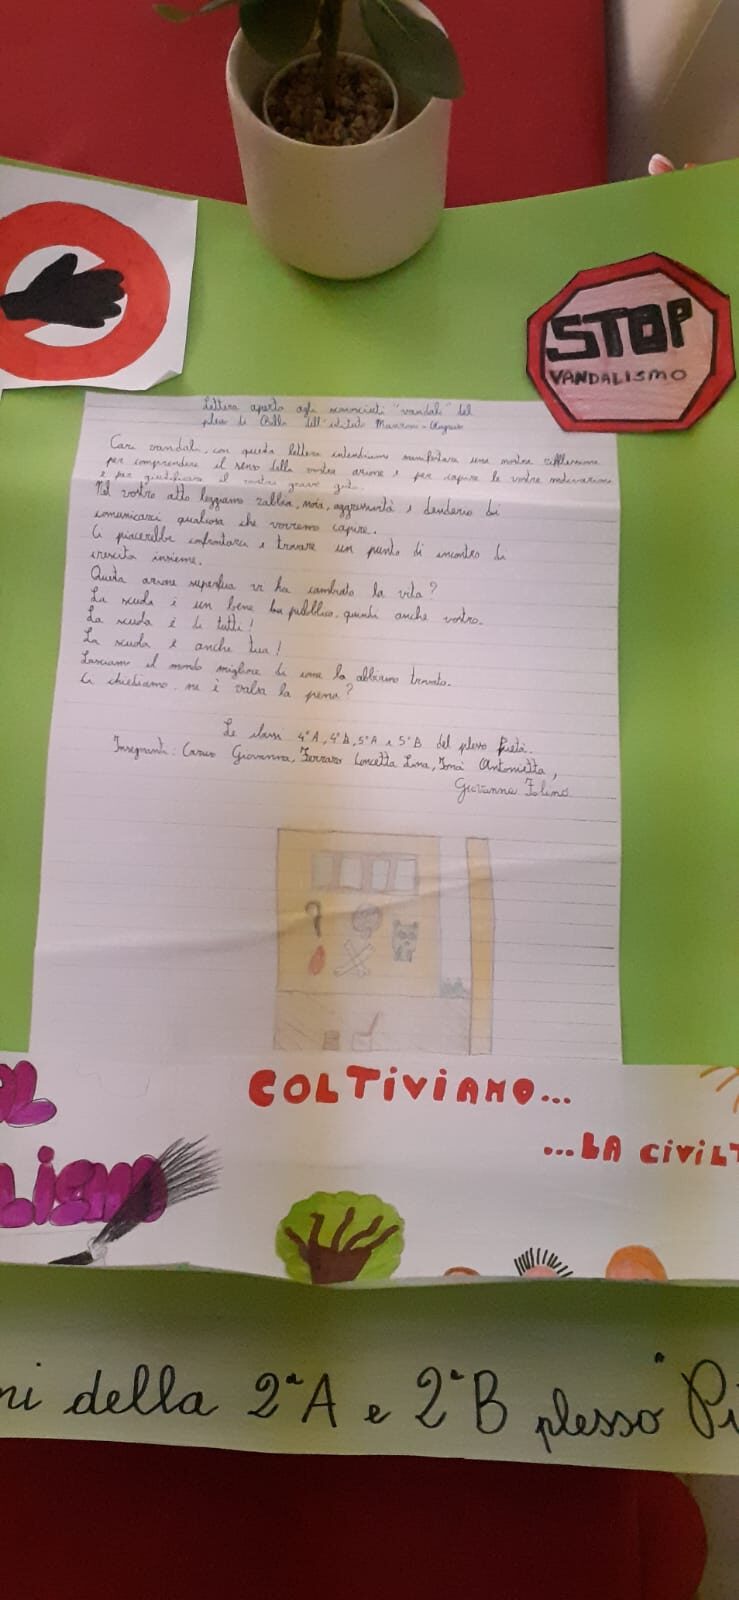 STOP
VANDALISMO
Lettera aperta agli sconosciuti "vandali" del
dell'istituto Manzoni - Augruso
Cari vandali, con questa lettera intendiamo manifestare una nostra riflessione
per comprendere il senso della vostra azione e per capire le vostre motivazioni
e per giustificare il vostro grave gesto.
Nel vostro atto leggiamo rabbia, noia, aggressività e desiderio di
comunicarci qualcosa che vorremo capire.
Ci piacerebbe confrontarci e trovare un punto di incontro di
crescita insieme.
Questa azione superflua vi ha cambiato la vita?
La scuola è un bene pubblico, quindi anche vostro.
La scuola è di tutti!
La scuola è anche tua!
Lasciamo il mondo migliore di come lo abbiamo trovato.
Ci chiediamo, ne è valsa la pena?
Le classi 4ªA, 4ªB, 5ªA e 5ªB del plesso Pietà.
Insegnanti: Caruso Giovanna, Ferraro Concetta Lina, Antonietta,
Giovanna Folino
COLTIVIAMO...
...LA CIVILT
LISMO
ni della 2ªA e 2ªB plesso "Pi